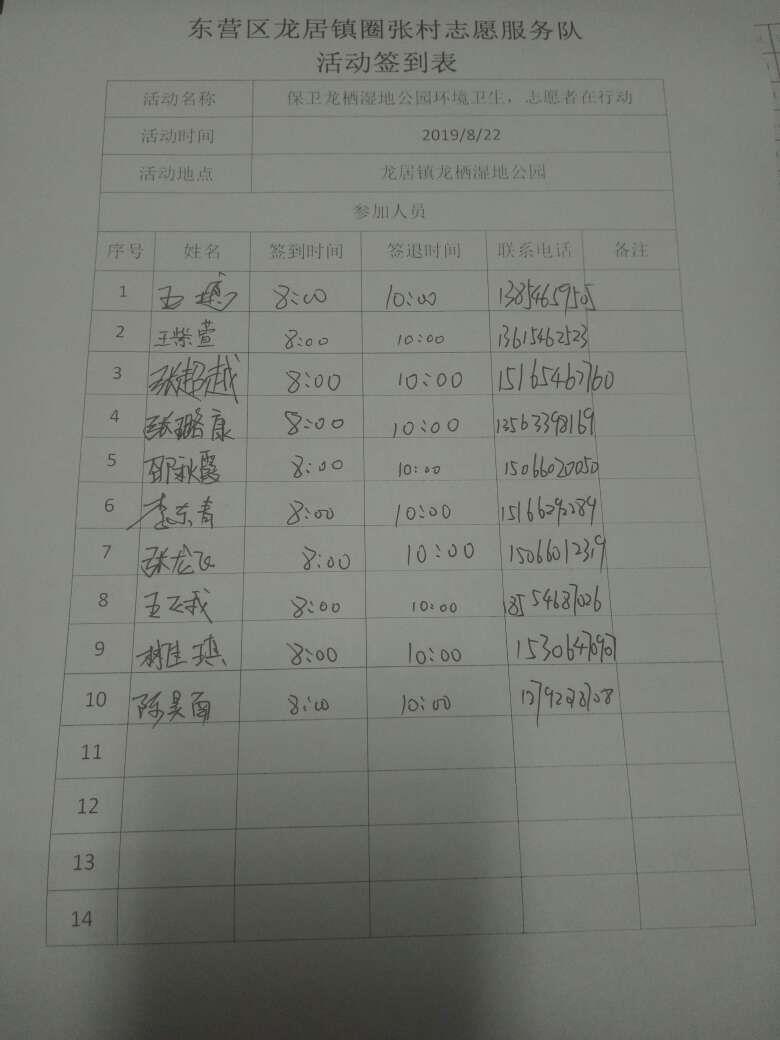 东营区龙居镇圈张村志愿服务队
活动签到表
活动名称 保卫龙栖湿地公园环境卫生，志愿者在行动
活动时间 2019/8/22
活动地点 龙居镇龙栖湿地公园
参加人员
序号 姓名 签到时间 签退时间 联系电话 备注
1 8:00 10:00 13854659505
2 王紫萱 8:00 10:00 13615462523
3 张超越 8:00 10:00 15165467760
4 张璐康 8:00 10:00 13563398169
5 邵秋霞 8:00 10:00 15066020050
6 李东青 8:00 10:00 15166292284
7 张龙飞 8:00 10:00 15066012319
8 8:00 10:00 18554687026
9 8:00 10:00 15306470907
10 8:00 10:00
11
12
13
14